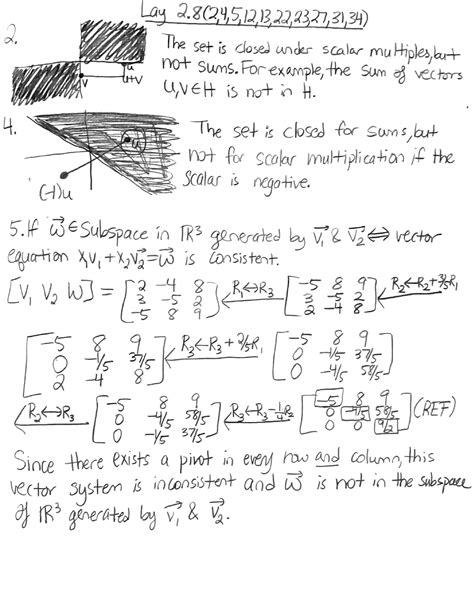 Lay 2.8(2,4,5,12,13,22,23,27,31,34)
2. The set is closed under scalar multiples, but
not sums. For example, the sum of vectors
u,v∈H is not in H.
u
v
u+v
4. The set is closed for sums, but
not for scalar multiplication if the
scalar is negative.
u
(-1)u
5. If w⃗ ∈ Subspace in ℝ³ generated by v⃗₁ & v⃗₂ ⟺ vector
equation x₁v₁+x₂v⃗₂=w⃗ is consistent.
[v₁ v₂ w] = [2 -4 8; 3 -5 2; -5 8 9] ←R₁↔R₃ [-5 8 9; 3 -5 2; 2 -4 8] ←R₂←R₂+3/5R₁
[-5 8 9; 0 -1/5 37/5; 2 -4 8] ←R₃←R₃+2/5R₁ [-5 8 9; 0 -1/5 37/5; 0 -4/5 58/5]
←R₂↔R₃ [-5 8 9; 0 -4/5 58/5; 0 -1/5 37/5] ←R₃←R₃-1/4R₂ [-5 8 9; 0 -4/5 58/5; 0 0 9/2] (REF)
Since there exists a pivot in every row and column, this
vector system is inconsistent and w⃗ is not in the subspace
of ℝ³ generated by v⃗₁ & v⃗₂.